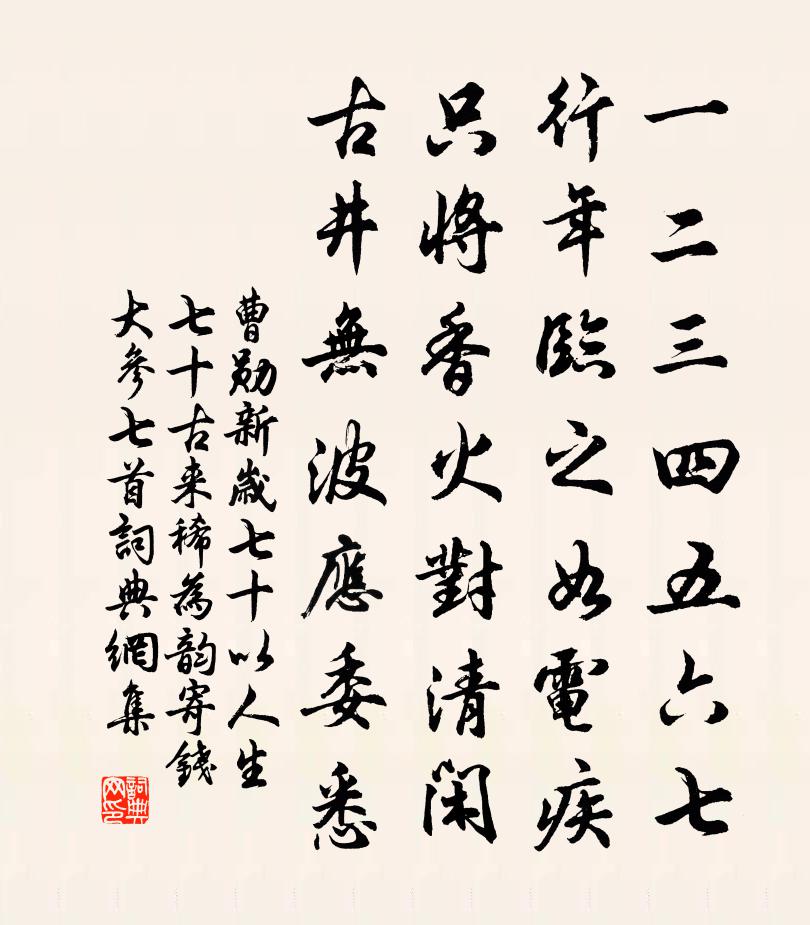 一二三四五六七
行年臨之如電疾
只將香火對清閑
古井無波應委悉
曹勛新歲七十以人生
七十古来稀為韵寄錢
大參七首詞典網集
詞典網印